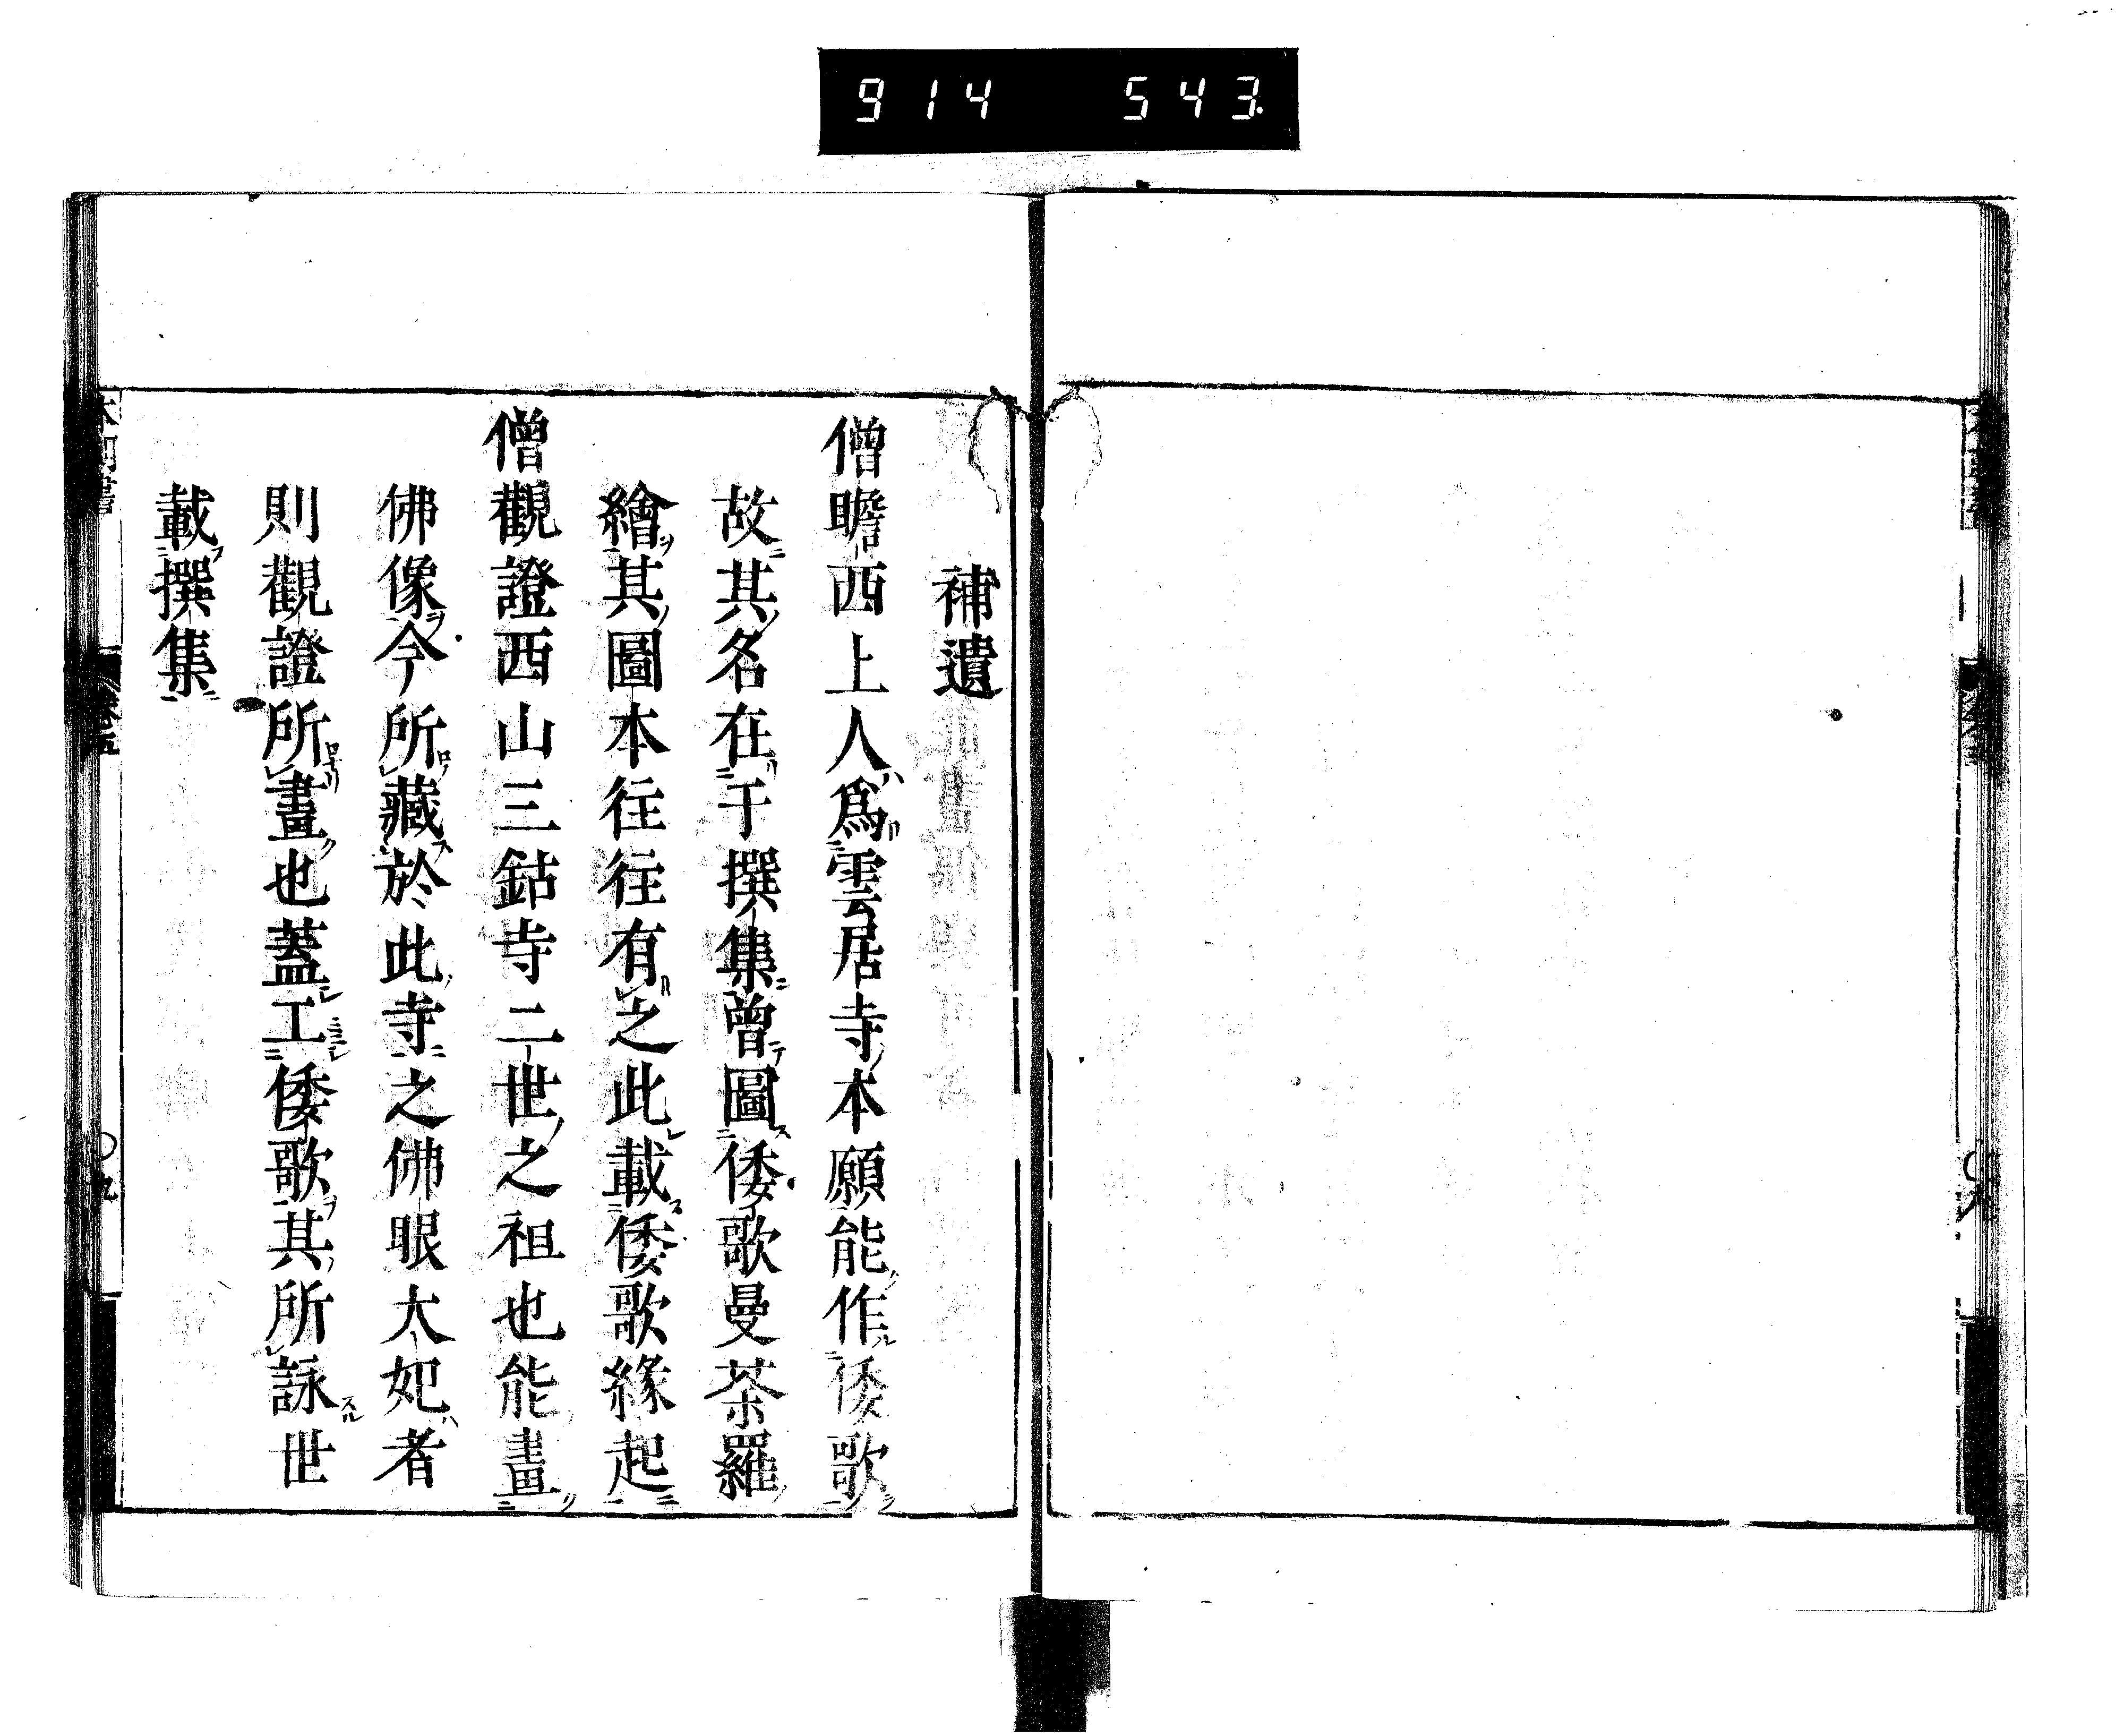 914 543
補遺
僧瞻西上人爲雲居寺本願能作倭歌
故其名在于撰集曾圖倭歌曼荼羅
繪其圖本往往有之此載倭歌緣起
僧觀證西山三鈷寺二世之祖也能畫
佛像今所藏於此寺之佛眼大妃者
則觀證所畫也蓋工倭歌其所詠世
載撰集